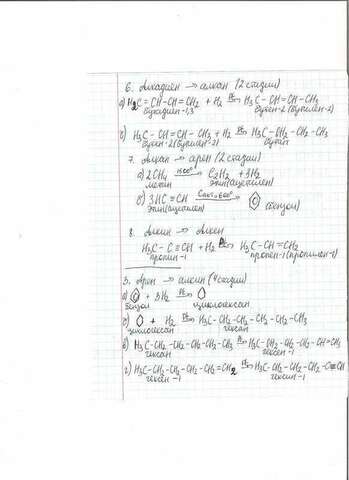 6. Алкадиен → алкан (2 стадии)
а) H₂C = CH-CH=CH₂ + H₂ Pt→ H₃C - CH=CH-CH₃
бутадиен-1,3 бутен-2 (бутилен-2)
б) H₃C - CH = CH - CH₃ + H₂ Pt→ H₃C - CH₂-CH₂-CH₃
бутен-2 (бутилен-2) бутан
7. Алкан → арен (2 стадии)
а) 2CH₄ 1500° C₂H₂ + 3H₂
метан этин (ацетилен)
б) 3HC ≡ CH Cакт, 600° (бензол)
этин (ацетилен)
8. Алкин → Алкен
H₃C - C ≡ CH + H₂ → H₃C - CH = CH₂
пропин-1 пропен-1 (пропилен-1)
9. Арен → алкин (4 стадии)
а) + 3H₂ Pt→
бензол циклогексан
б) + H₂ Pt→ H₃C-CH₂-CH₂-CH₂-CH₂-CH₃
циклогексан гексан
в) H₃C-CH₂-CH₂-CH₂-CH₂-CH₃ Pt→ H₃C-CH₂-CH₂-CH₂-CH=CH₂
гексан гексен-1
г) H₃C-CH₂-CH₂-CH₂-CH=CH₂ Pt→ H₃C-CH₂-CH₂-CH₂-C≡CH
гексен-1 гексин-1